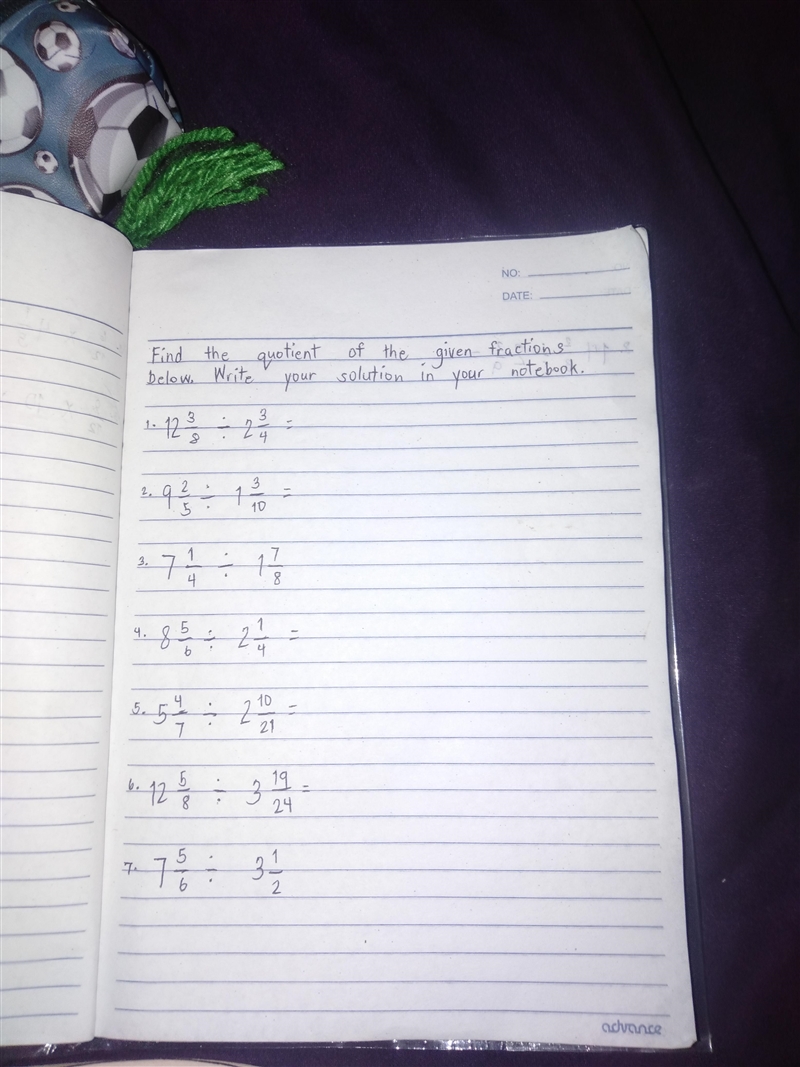 NO:
DATE:
Find the quotient of the given fractions
below. Write your solution in your notebook.
1. 12 3/8 ÷ 2 3/4 =
2. 9 2/5 ÷ 1 3/10 =
3. 7 1/4 ÷ 1 7/8
4. 8 5/6 ÷ 2 1/4 =
5. 5 4/7 ÷ 2 10/21 =
6. 12 5/8 ÷ 3 19/24 =
7. 7 5/6 ÷ 3 1/2
advance